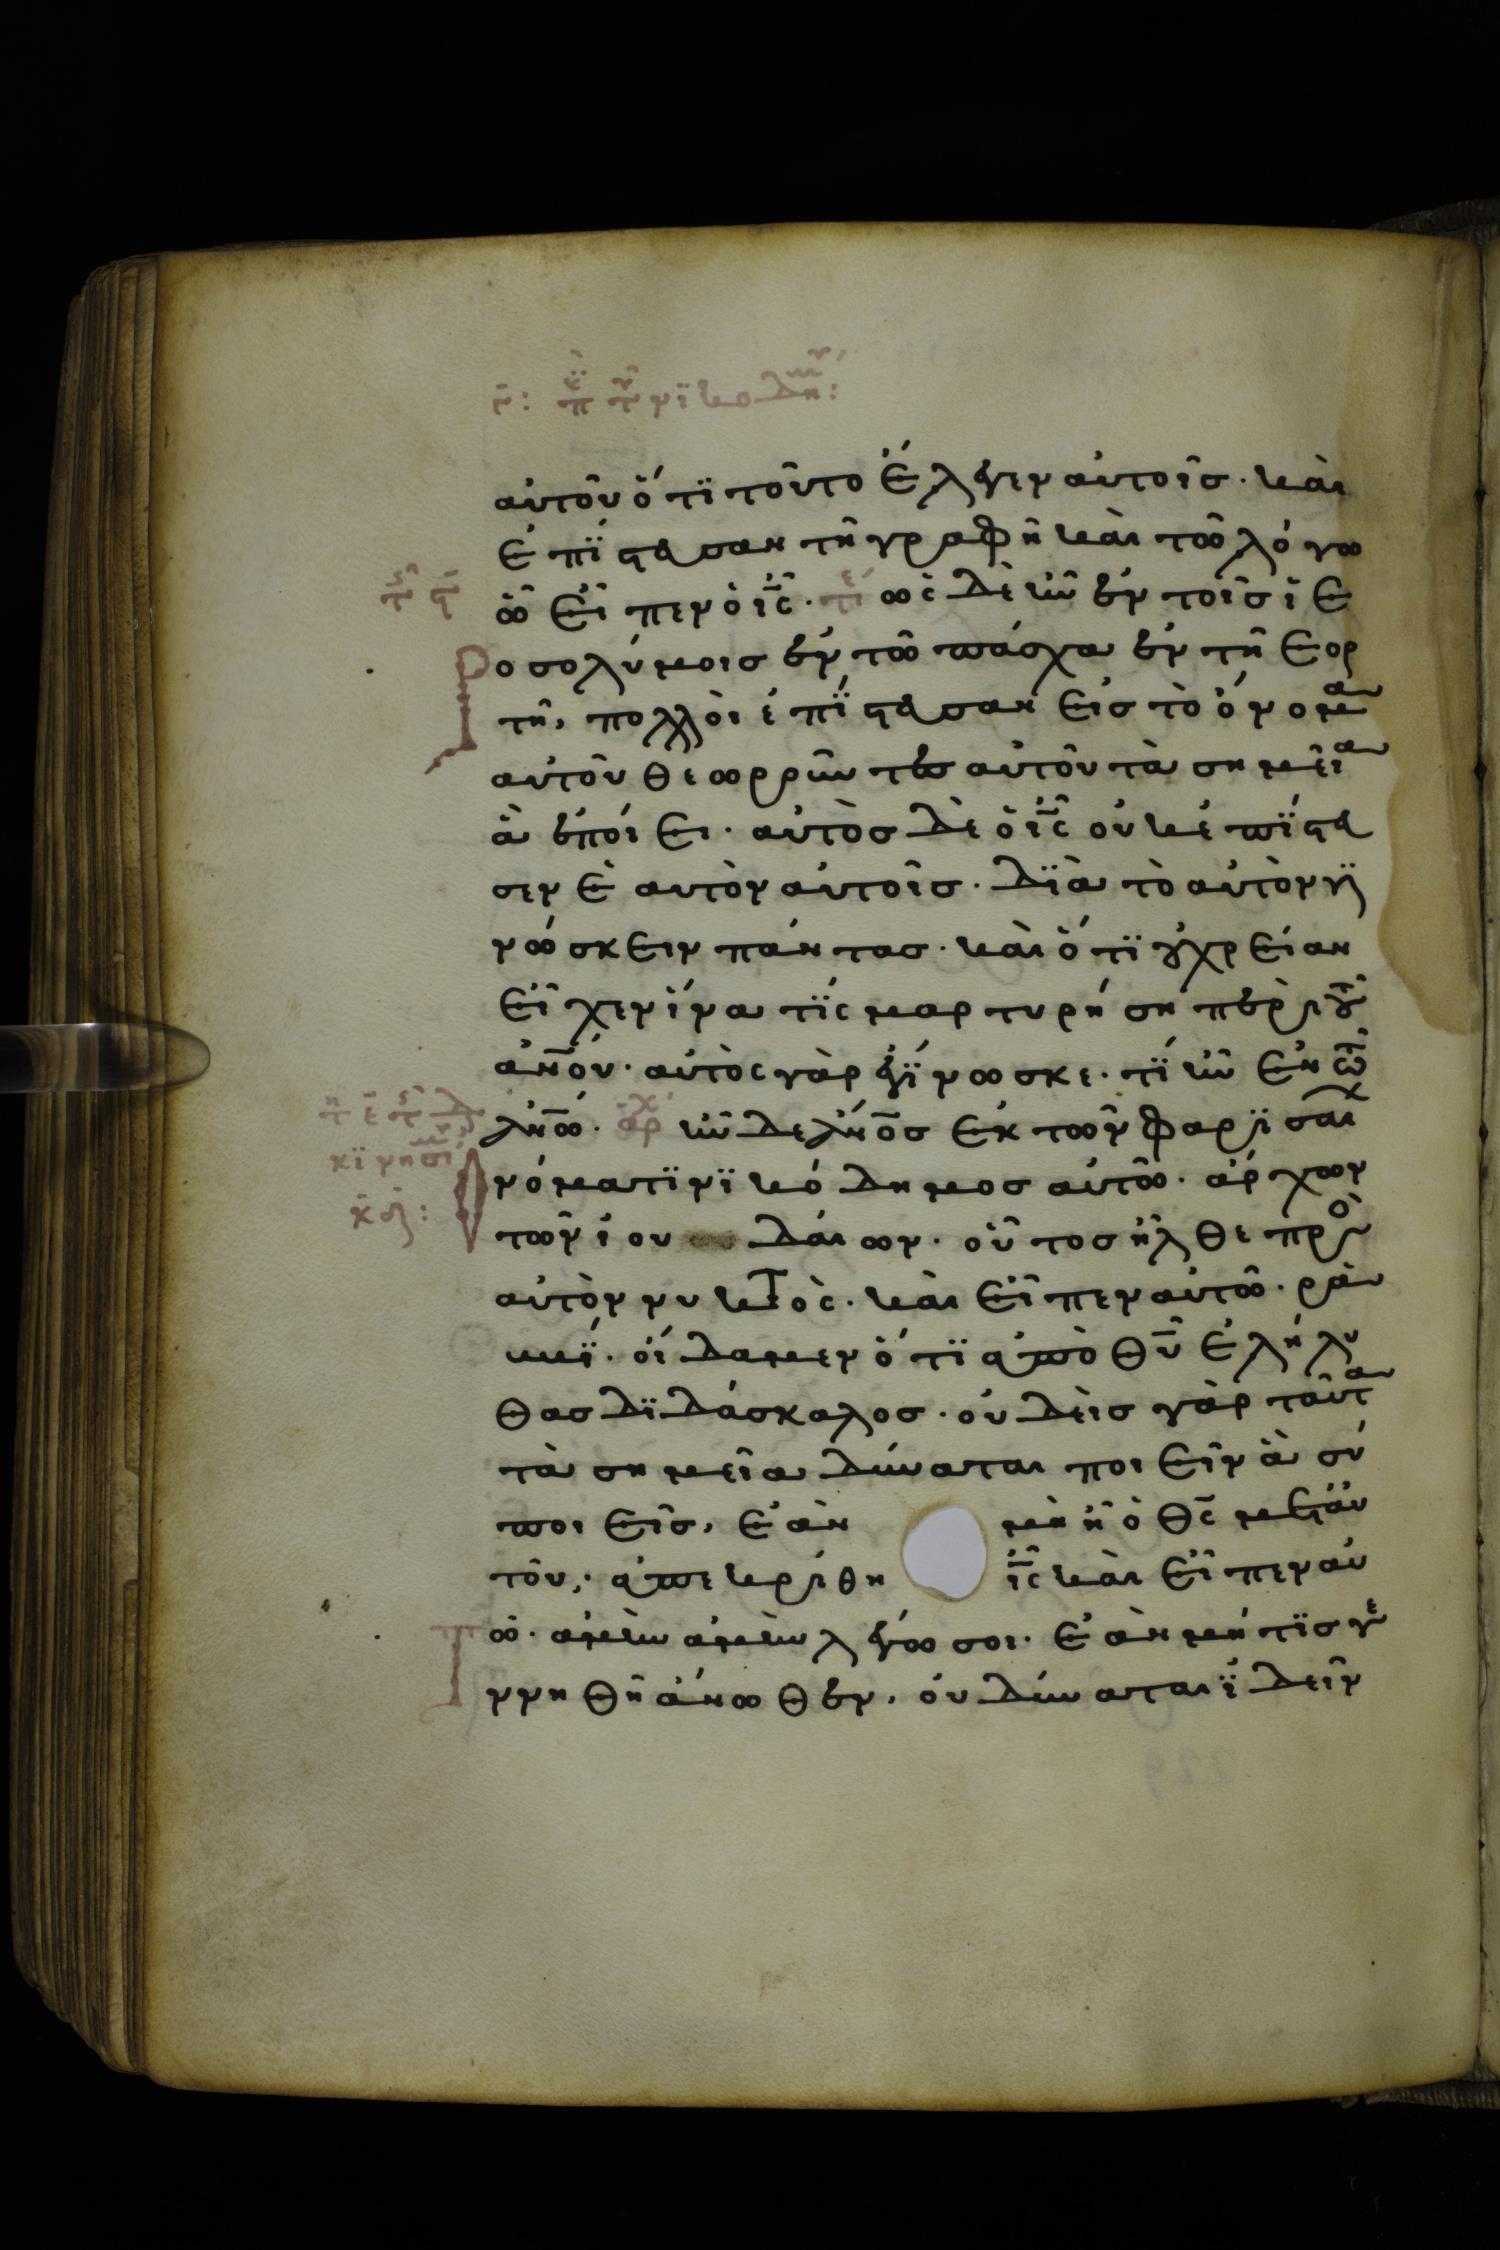 αὐτοῦ ὅτϊ τοῦτο ἔλεγεν αὐτοῖσ· καὶ
ἐπΐστευσαν τῆ γραφῆ καὶ τῶ λόγω
ὧ εἶπεν ὁ ις̅· ὡς δὲ ἦν ἐν τοῖσ ἱε
ροσολύμοισ ἐν τῶ πάσχα ἐν τῆ ἑορ
τῆ, πολλοὶ ἐπΐστευσαν εἰσ τὸ ὄνομα
αὐτοῦ θεωροῦντεσ αὐτοῦ τὰ σημεῖα
ἃ ἐποίει· αὐτὸσ δὲ ὁ ις̅ οὐκ ἐπΐστευ
σεν ἑαυτὸν αὐτοῖσ· δϊὰ τὸ αὐτὸν γϊ
νώσκειν πάντασ· καὶ ὅτϊ οὐ χρείαν
εἶχεν ἵνα τϊς μαρτυρήση περὶ τοῦ
ἀν̅ου· αὐτὸς γὰρ ἐγΐνωσκε· τΐ ἦν ἐν τῶ
ἀν̅ω· ἦν δὲ ἀν̅οσ ἐκ τῶν φαρϊσαί
νόματϊ νϊκόδημοσ αὐτῶ· ἄρχων
τῶν ἰουδαίων· οὗτοσ ἦλθε πρὸσ
αὐτὸν νυκτὸς· καὶ εἶπεν αὐτῶ· ρὰβ
βΐ· οἴδαμεν ὅτϊ ἀπὸ θυ̅ ἐλήλυ
θασ δϊδάσκαλοσ· οὐδεὶσ γὰρ ταῦτα
τὰ σημεῖα δύναται ποιεῖν ἃ σὺ
ποιεῖσ, ἐὰν μὴ ἦ ὁ θς̅ μετ' αὐ
τοῦ,· ἀπεκρίθη ις̅ καὶ εἶπεν αὐ
ῶ· ἀμὴν ἀμὴν λέγω σοι· ἐὰν μή τϊσ γε
ννηθῆ ἄνωθεν, οὐ δύναται ἰδεῖν